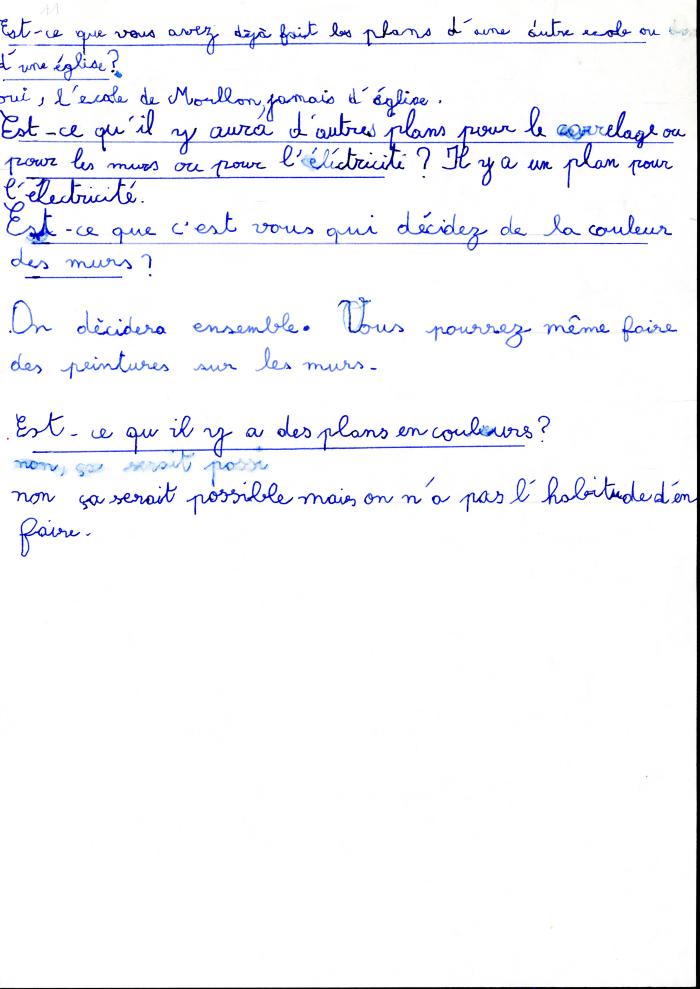 Est-ce que vous avez déjà fait les plans d'une autre ecole ou
d'une église?
oui, l'école de Moullon, jamais d'église.
Est-ce qu'il y aura d'autres plans pour le correlage ou
pour les murs ou pour l'éléctricité ? Il y a un plan pour
l'électricité.
Est-ce que c'est vous qui décidez de la couleur
des murs ?
On décidera ensemble. Vous pourrez même faire
des peintures sur les murs.
Est-ce qu'il y a des plans en couleurs ?
non, ça serait possi
non ça serait possible mais on n'a pas l'habitude d'en
faire.